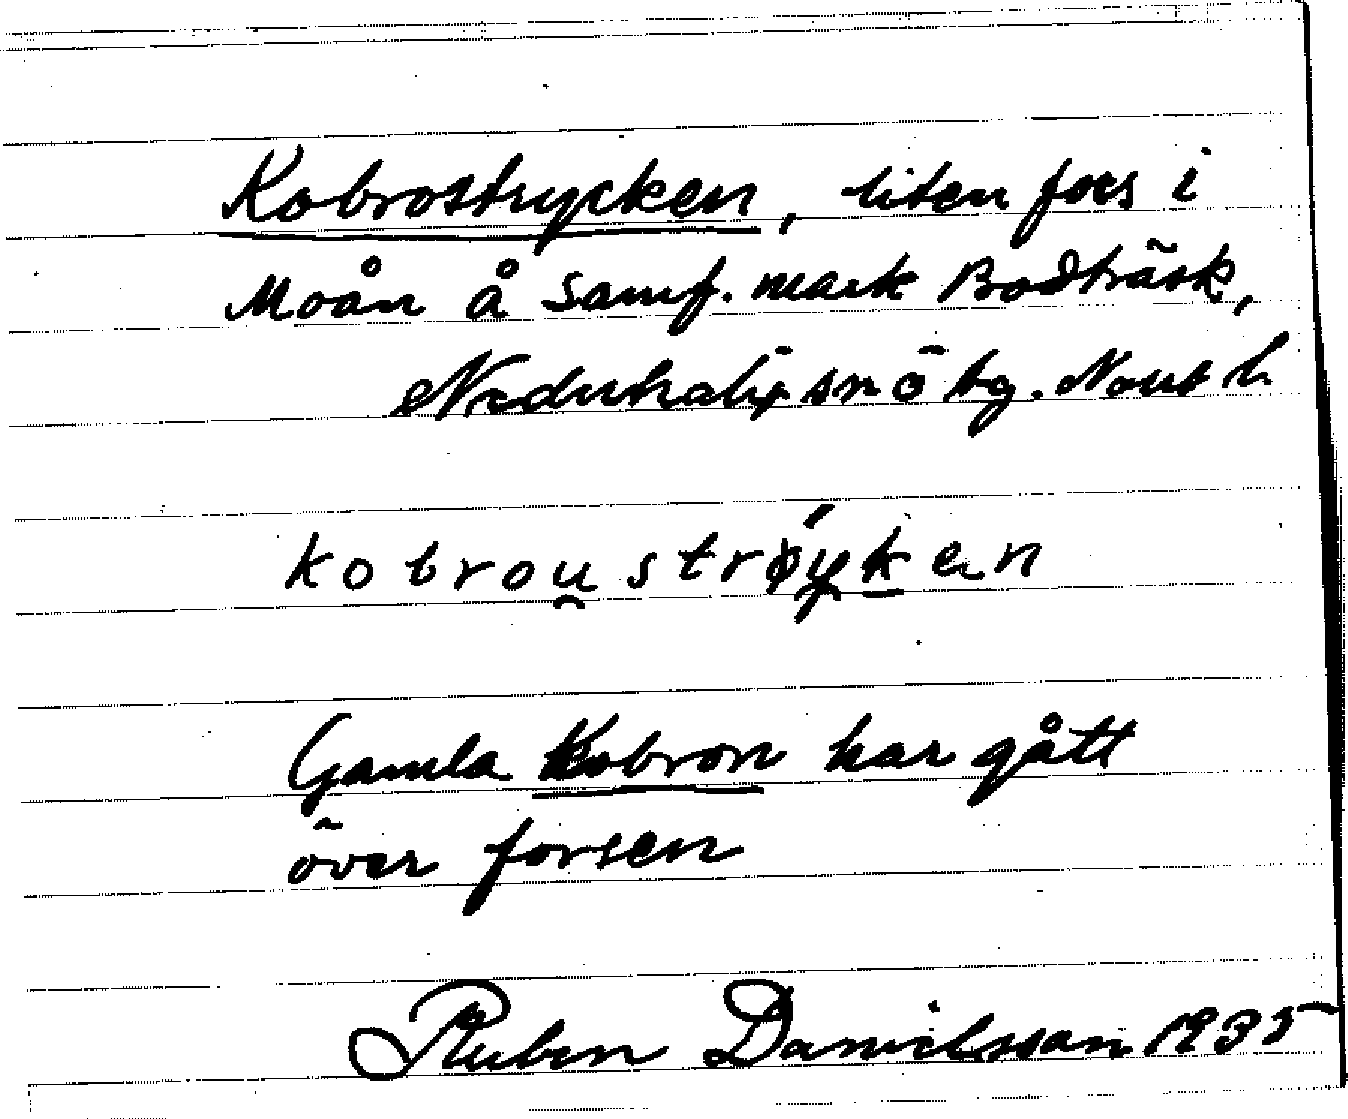 Kobrostrycken, liten fors i
Moån å samf. mark Bodträsk,
Nederkalix sn ö bg. Nourb l.
kobrou̯strøy̯ken
Gamla Kobron har gått
över forsen
Ruben Danielsson 1935